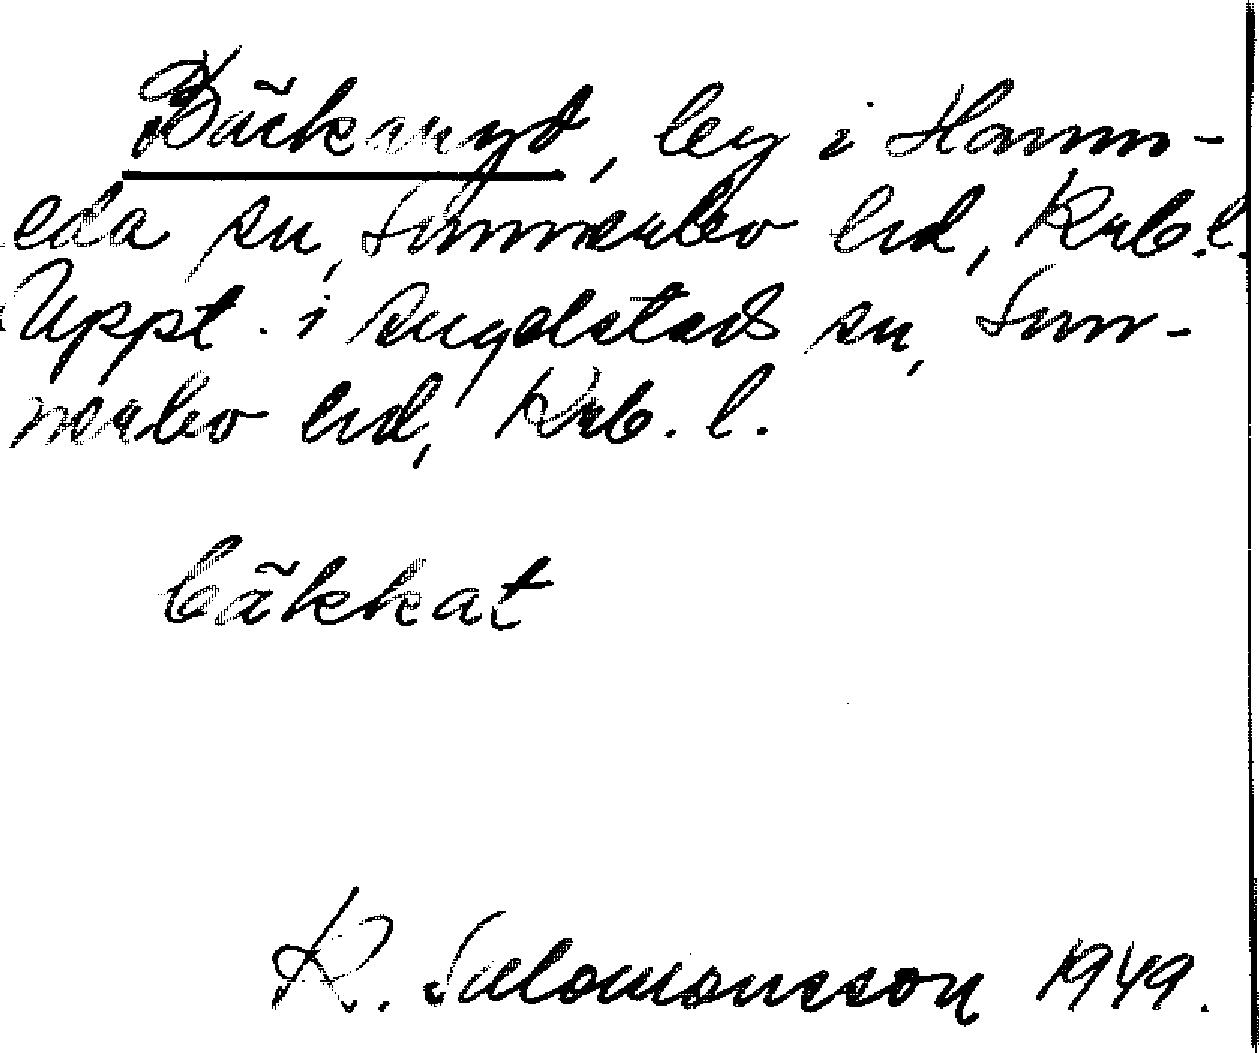 Bäckaryd, by i Hamn-
eda sn, Sunnerbo hd, Krb.l.
Uppt. i Angelstads sn, Sun-
nerbo hd, Krb. l.
bäkkat
R. Salomonsson 1949.